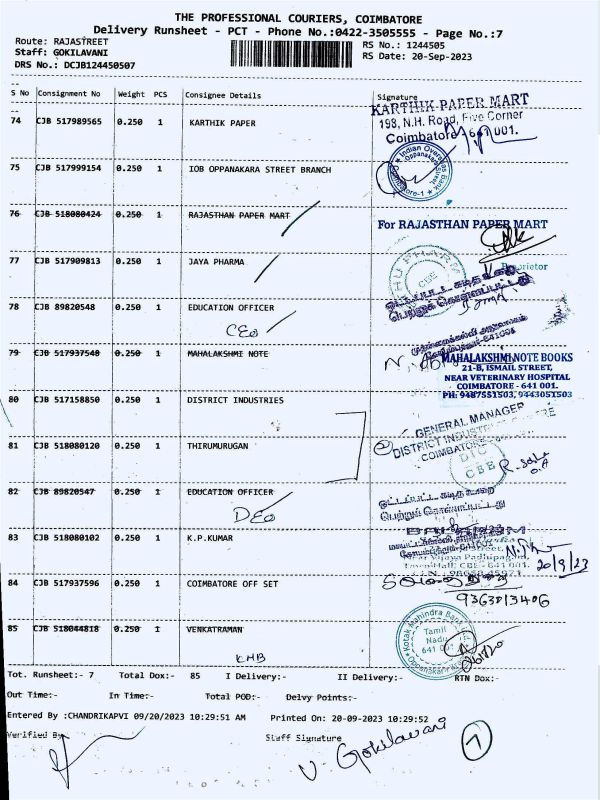 THE PROFESSIONAL COURIERS, COIMBATORE
Delivery Runsheet - PCT - Phone No.:0422-3505555 - Page No.:7
Route: RAJASTREET
Staff: GOKILAVANI
DRS No.: DCJB124450507
RS No.: 1244505
RS Date: 20-Sep-2023
S No Consignment No Weight PCS Consignee Details Signature
74 CJB 517989565 0.250 1 KARTHIK PAPER
KARTHIK PAPER MART
198, N.H. Road, Five Corner
Coimbatore 641 001.
75 CJB 517999154 0.250 1 IOB OPPANAKARA STREET BRANCH
Indian Overseas Bank
76 CJB 518080424 0.250 1 RAJASTHAN PAPER MART
For RAJASTHAN PAPER MART
Proprietor
77 CJB 517909813 0.250 1 JAYA PHARMA
CBE
78 CJB 89820548 0.250 1 EDUCATION OFFICER
CEO
79 CJB 517937548 0.250 1 MAHALAKSHMI NOTE
MAHALAKSHMI NOTE BOOKS
21-B, ISMAIL STREET,
NEAR VETERINARY HOSPITAL
COIMBATORE - 641 001.
PH: 9487551503, 9443051503
80 CJB 517158850 0.250 1 DISTRICT INDUSTRIES
GENERAL MANAGER
DISTRICT INDUSTRIES CENTRE
COIMBATORE
DIC
CBE
81 CJB 518080120 0.250 1 THIRUMURUGAN
82 CJB 89820547 0.250 1 EDUCATION OFFICER
DEO
83 CJB 518080102 0.250 1 K.P.KUMAR
20/9/23
84 CJB 517937596 0.250 1 COIMBATORE OFF SET
9363013406
85 CJB 518044818 0.250 1 VENKATRAMAN
KMB
Kotak Mahindra Bank
Tamil
Nadu
641 001
Tot. Runsheet:- 7 Total Dox:- 85 I Delivery:- II Delivery:- RTN Dox:-
Out Time:- In Time:- Total POD:- Delvy Points:-
Entered By :CHANDRIKAPVI 09/20/2023 10:29:51 AM Printed On: 20-09-2023 10:29:52
Verified By
Staff Signature
V. Gokilavani
7